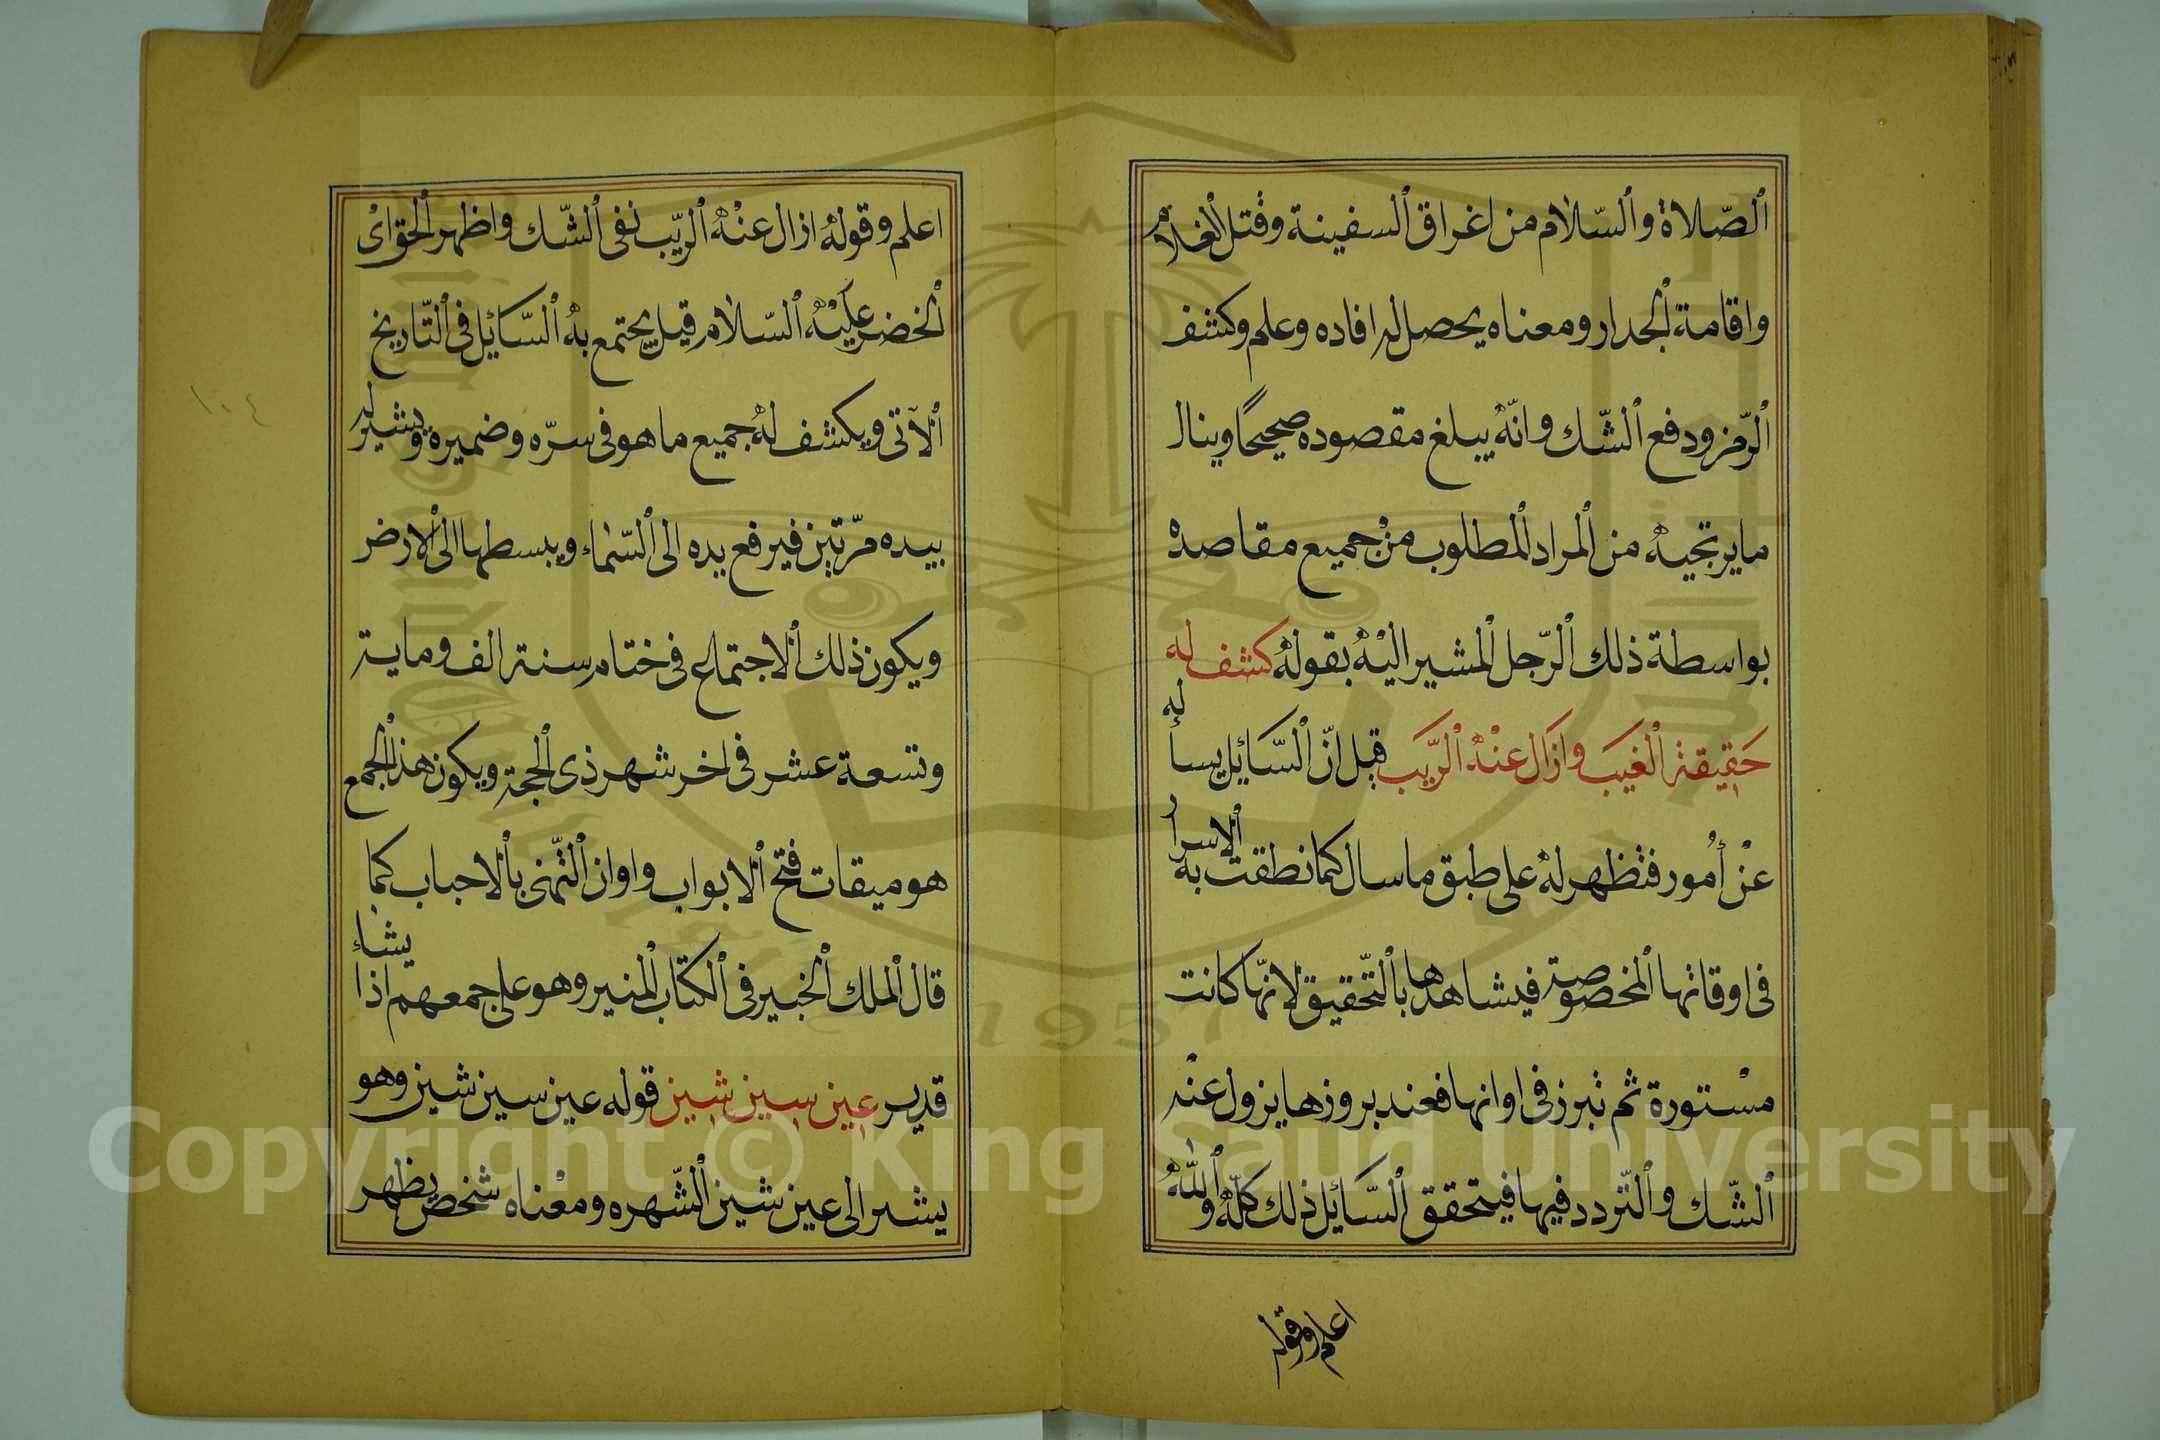 الصّلاة والسّلام من اغراق السفينة وقتل الغلام
واقامة الجدار ومعناه يحصل له افاده وعلم وكشف
الرّمز ودفع الشّك وانّه يبلغ مقصوده صحيحًا وينال
ما يرتجيه من المراد المطلوب من جميع مقاصده
بواسطة ذلك الرّجل المشير اليه بقوله كشف له
حقيقة الغيب وازال عنه الريّب قيل انّ السّائل يسأله
عن أمور فتظهر له على طبق ما سال كما نطقت به الاسرار
فى اوقاتها المخصوصة فيشاهدها بالتّحقيق لانّها كانت
مستورة ثم تبرز فى اوانها فعند بروزها يزول عنه
الشّك والتّردد فيها فيتحقق السّائل ذلك كلّه والله
اعلم وقوله
اعلم وقوله ازال عنه الريّب نفى الشّك واظهر الحق اىْ
الخضر عليه السّلام قيل يجتمع به السّائل فى التّاريخ
الآتى ويكشف له جميع ما هو فى سرّه وضميره ويشير له
بيده مرّتين فيرفع يده الى السّماء ويبسطها الى الارض
ويكون ذلك الاجتماع فى ختام سنة الف وماية
وتسعة عشر فى اخر شهر ذى الحجة ويكون هذا الجمع
هو ميقات فتح الابواب واوان التّهنى بالاحباب كما
قال الملك الخبير فى الكتاب المنير وهو على جمعهم اذا يشاء
قدير عين سين شين قوله عين سين شين وهو
يشير الى عين شين الشّهره ومعْناه شخص يظهر
١٠٤
Copyright © King Saud University
1957